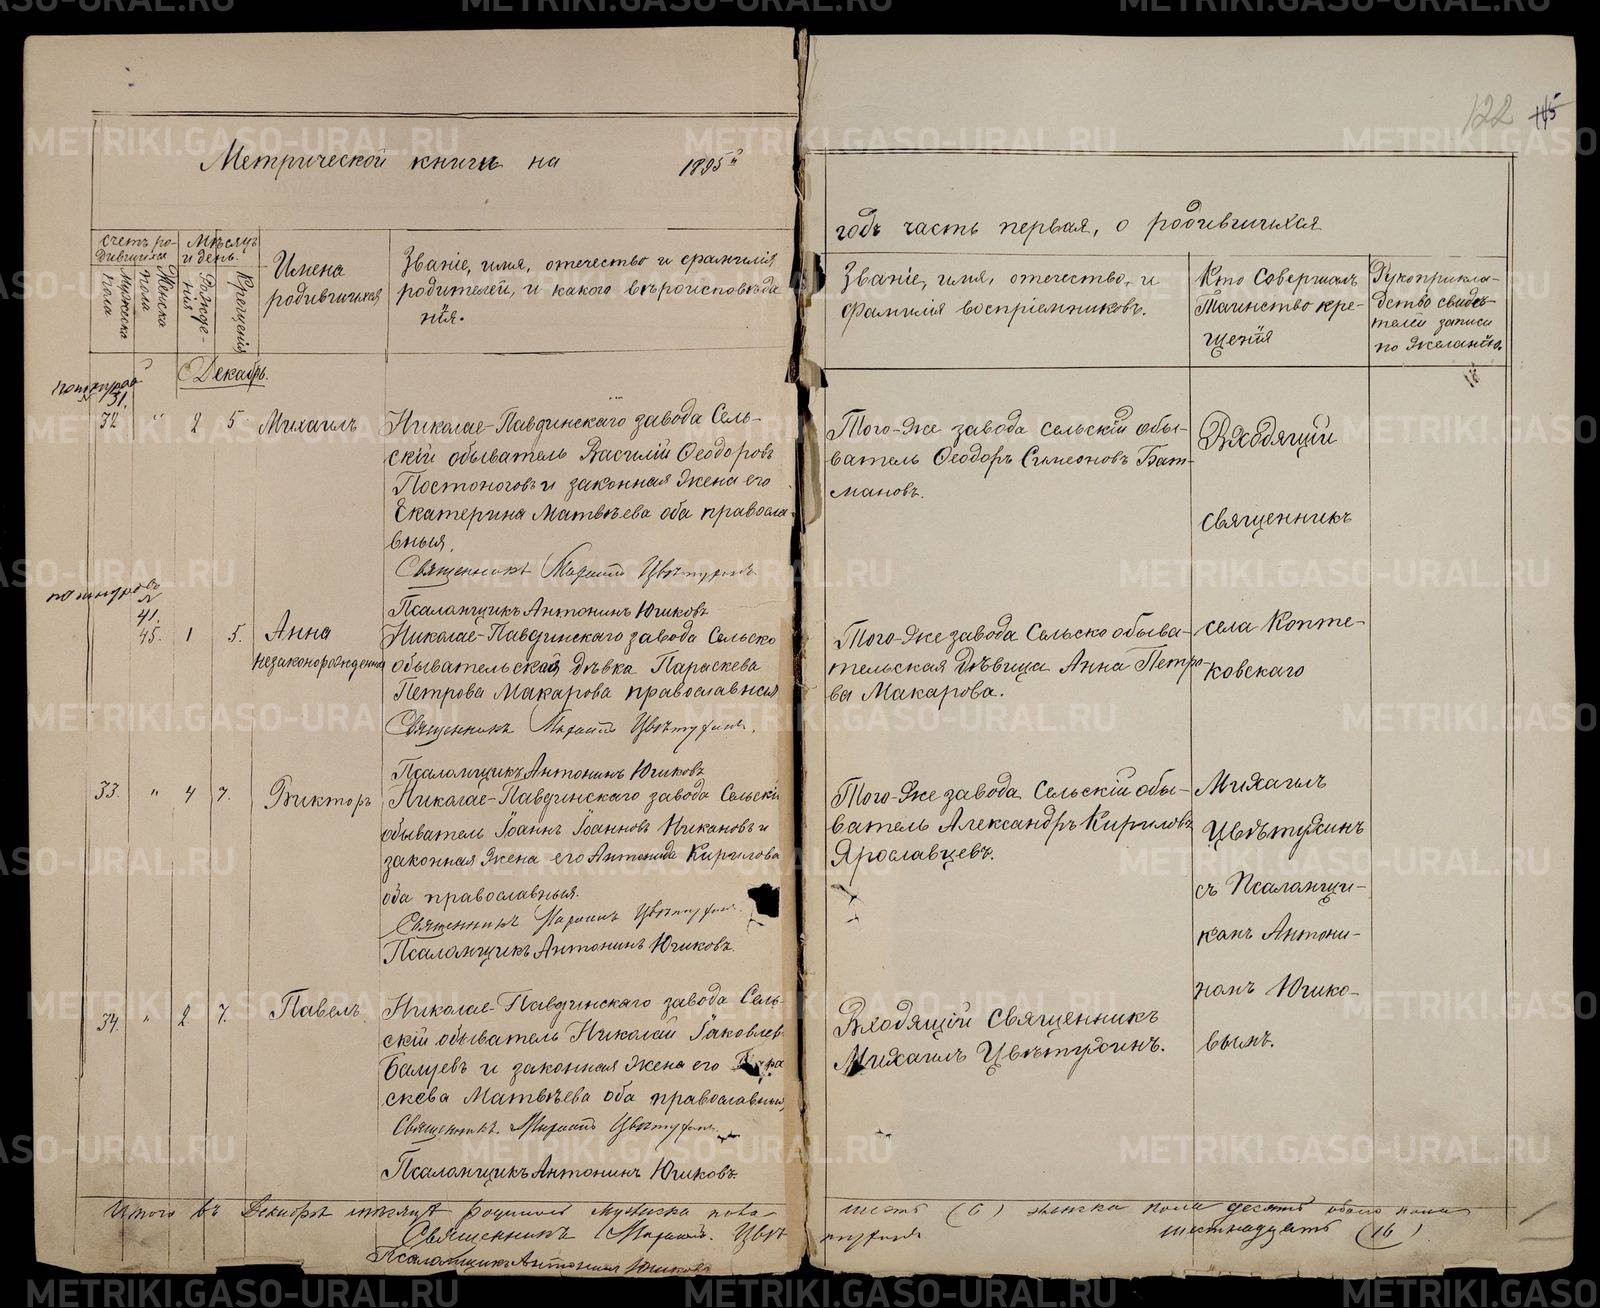 Метрической книги на 1895й
122 115
годъ часть первая, о родившихся
счетъ ро-
дившихся
Мужска пола
Женска пола
Мѣсяцъ
и день.
Рожде-
нія
Крещенія
Имена
родившихся
Званіе, имя, отечество и фамилія
родителей, и какого вѣроисповѣда
нія.
Званіе, имя, отечество, и
фамилія воспріемниковъ.
Кто Совершалъ
Таинство кре-
щенія
Рукоприкла-
дство свидѣ-
телей записи
по желанію.
Декабрь.
31.
32 " 2 5 Михаилъ
Николае-Павдинскаго завода Сель-
скій обыватель Василій Ѳеодоровъ
Постоноговъ и законная жена его
Екатерина Матвѣева оба правосла-
вныя.
Священникъ Михаилъ Цвѣтухинъ
Псаломщикъ Антонинъ Югиковъ
Того-же завода сельскій обы-
ватель Ѳеодоръ Симеоновъ Бат-
мановъ.
Входящій
священникъ
41.
45. 1 5. Анна
незаконорожденная
Николае-Павдинскаго завода Сельско
обывательская дѣвка Параскева
Петрова Макарова православная
Священникъ Михаилъ Цвѣтухинъ.
Псаломщикъ Антонинъ Югиковъ
Того-же завода Сельско обыва-
тельская дѣвица Анна Петро-
ва Макарова.
села Копте-
ковскаго
33. " 4 7. Викторъ
Николае-Павдинскаго завода Сельскій
обыватель Іоаннъ Іоанновъ Никановъ и
законная жена его Антонида Кирилова
оба православныя.
Священникъ Михаилъ Цвѣтухинъ
Псаломщикъ Антонинъ Югиковъ.
Того-же завода Сельскій обы-
ватель Александръ Кириловъ
Ярославцевъ.
Михаилъ
Цвѣтухинъ
съ Псаломщи-
комъ Антони-
номъ Югико-
вымъ.
34. " 2 7. Павелъ
Николае-Павдинскаго завода Сель-
скій обыватель Николай Іаковлев
Балуевъ и законная жена его Пара
скева Матвѣева оба православныя,
Священникъ. Михаилъ Цвѣтухинъ.
Псаломщикъ Антонинъ Югиковъ.
Входящій священникъ
Михаилъ Цвѣтухинъ.
Итого въ Декабрѣ мѣсяцѣ родилось мужска пола
шесть (6) женска пола десять обоего пола
шестнадцать (16)
Священникъ Михаилъ. Цвѣ
тухинъ
Псаломщикъ Антонинъ Югиковъ
METRIKI.GASO-URAL.RU